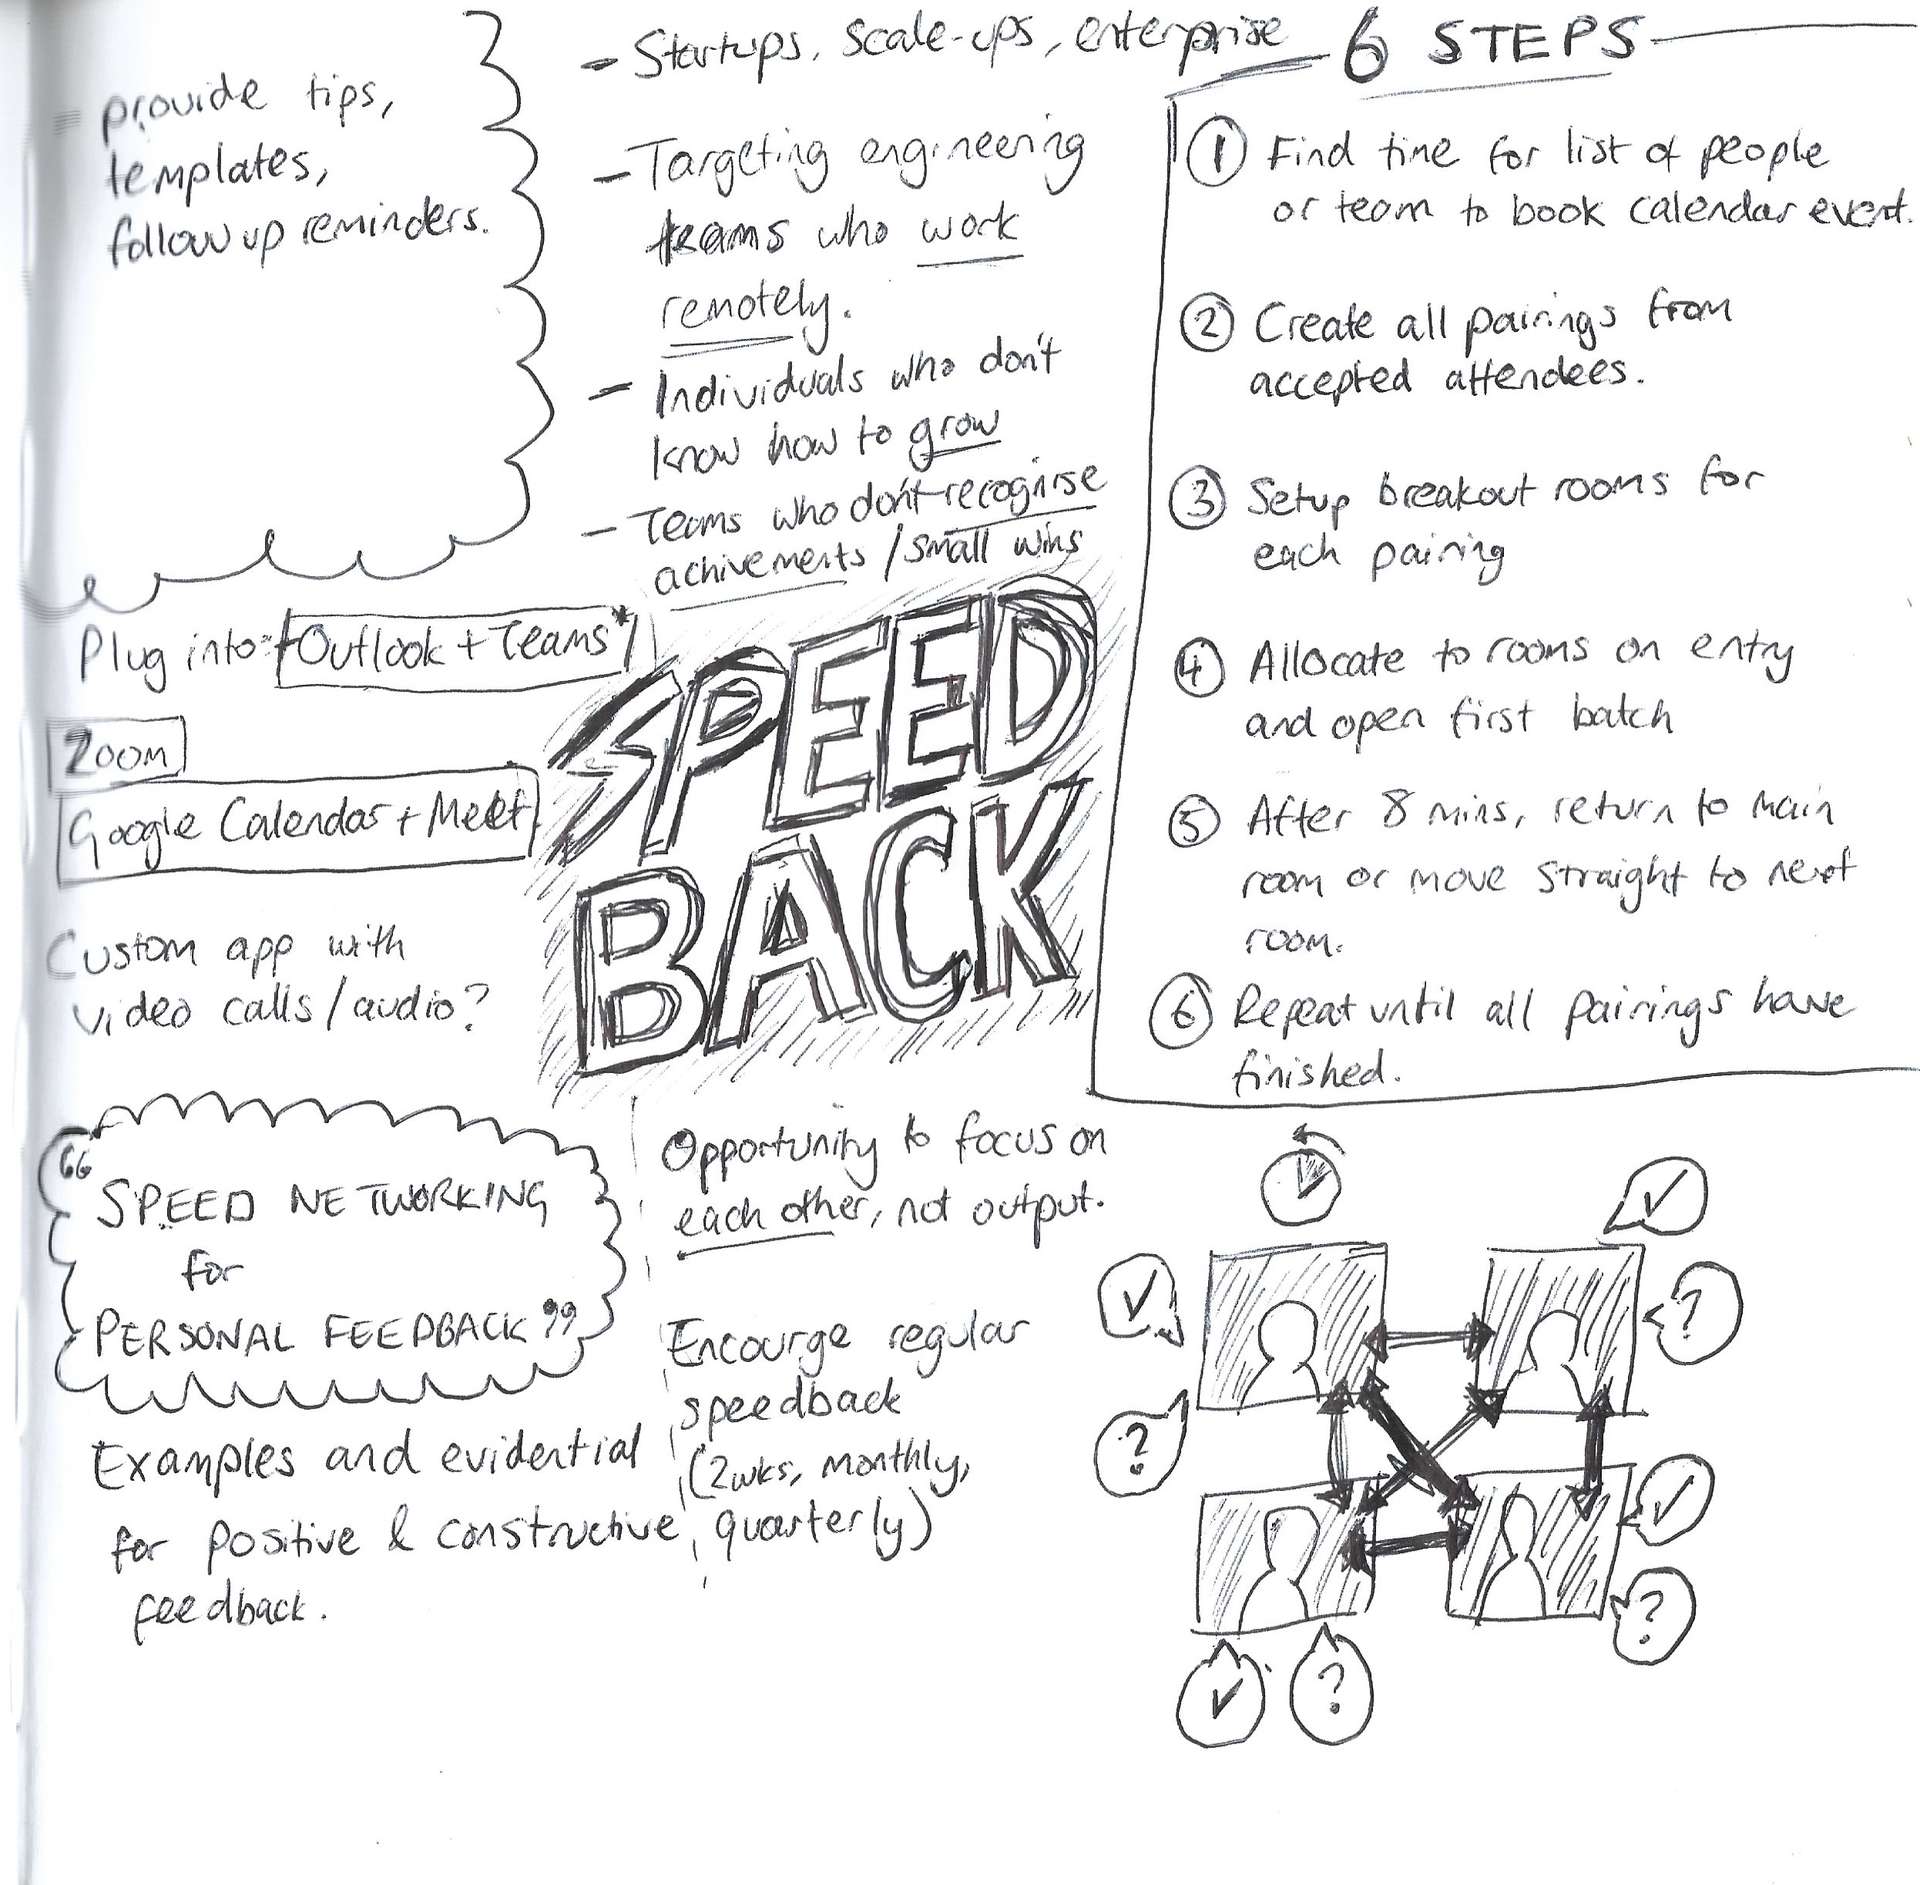 - provide tips,
templates,
follow up reminders.
- Startups, scale-ups, enterprise
- Targeting engineering
teams who work
remotely.
- Individuals who don't
know how to grow
- Teams who don't recognise
achivements / small wins
Plug into: Outlook + Teams*
Zoom
Google Calendar + Meet
Custom app with
video calls / audio?
SPEED
BACK
6 STEPS
1 Find time for list of people
or team to book calendar event.
2 Create all pairings from
accepted attendees.
3 Setup breakout rooms for
each pairing
4 Allocate to rooms on entry
and open first batch
5 After 8 mins, return to main
room or move straight to next
room.
6 Repeat until all pairings have
finished.
"SPEED NETWORKING
for
PERSONAL FEEDBACK"
Examples and evidential
for positive & constructive
feedback.
Opportunity to focus on
each other, not output.
Encourge regular
speedback
(2wks, monthly,
quarterly)
?
?
?
?